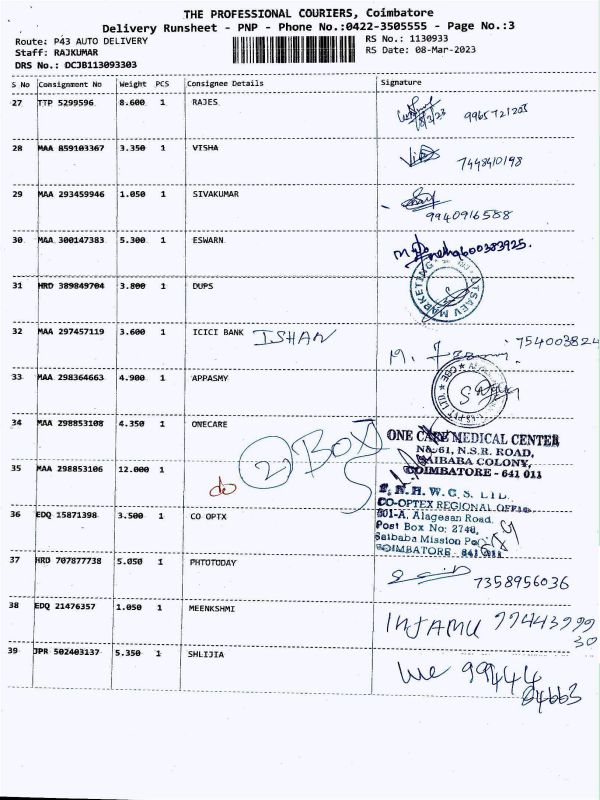 THE PROFESSIONAL COURIERS, Coimbatore
Delivery Runsheet - PNP - Phone No.:0422-3505555 - Page No.:3
Route: P43 AUTO DELIVERY
RS No.: 1130933
Staff: RAJKUMAR
RS Date: 08-Mar-2023
DRS No.: DCJB113093303
S No Consignment No Weight PCS Consignee Details Signature
27 TTP 5299596 8.600 1 RAJES
8/3/23 9965721205
28 MAA 859103367 3.350 1 VISHA
7448410198
29 MAA 293459946 1.050 1 SIVAKUMAR
9940916588
30 MAA 300147383 5.300 1 ESWARN
9600383925.
31 HRD 389849704 3.800 1 DUPS
MARKETING
32 MAA 297457119 3.600 1 ICICI BANK ISHAN
754003824
33 MAA 298364663 4.900 1 APPASMY
34 MAA 298853108 4.350 1 ONECARE
2 BOX
ONE CARE MEDICAL CENTER
No.61, N.S.R. ROAD,
SAIBABA COLONY,
COIMBATORE - 641 011
35 MAA 298853106 12.000 1
do
T.N.H.W.C.S. LTD.
CO-OPTEX REGIONAL OFFICE
36 EDQ 15871398 3.500 1 CO OPTX
801-A, Alagesan Road,
Post Box No: 2748,
Saibaba Mission Po
COIMBATORE - 641 011
37 HRD 707877738 5.050 1 PHTOTODAY
7358956036
38 EDQ 21476357 1.050 1 MEENKSHMI
INJAMU 7744399930
39 JPR 502403137 5.350 1 SHLIJIA
99444
04663